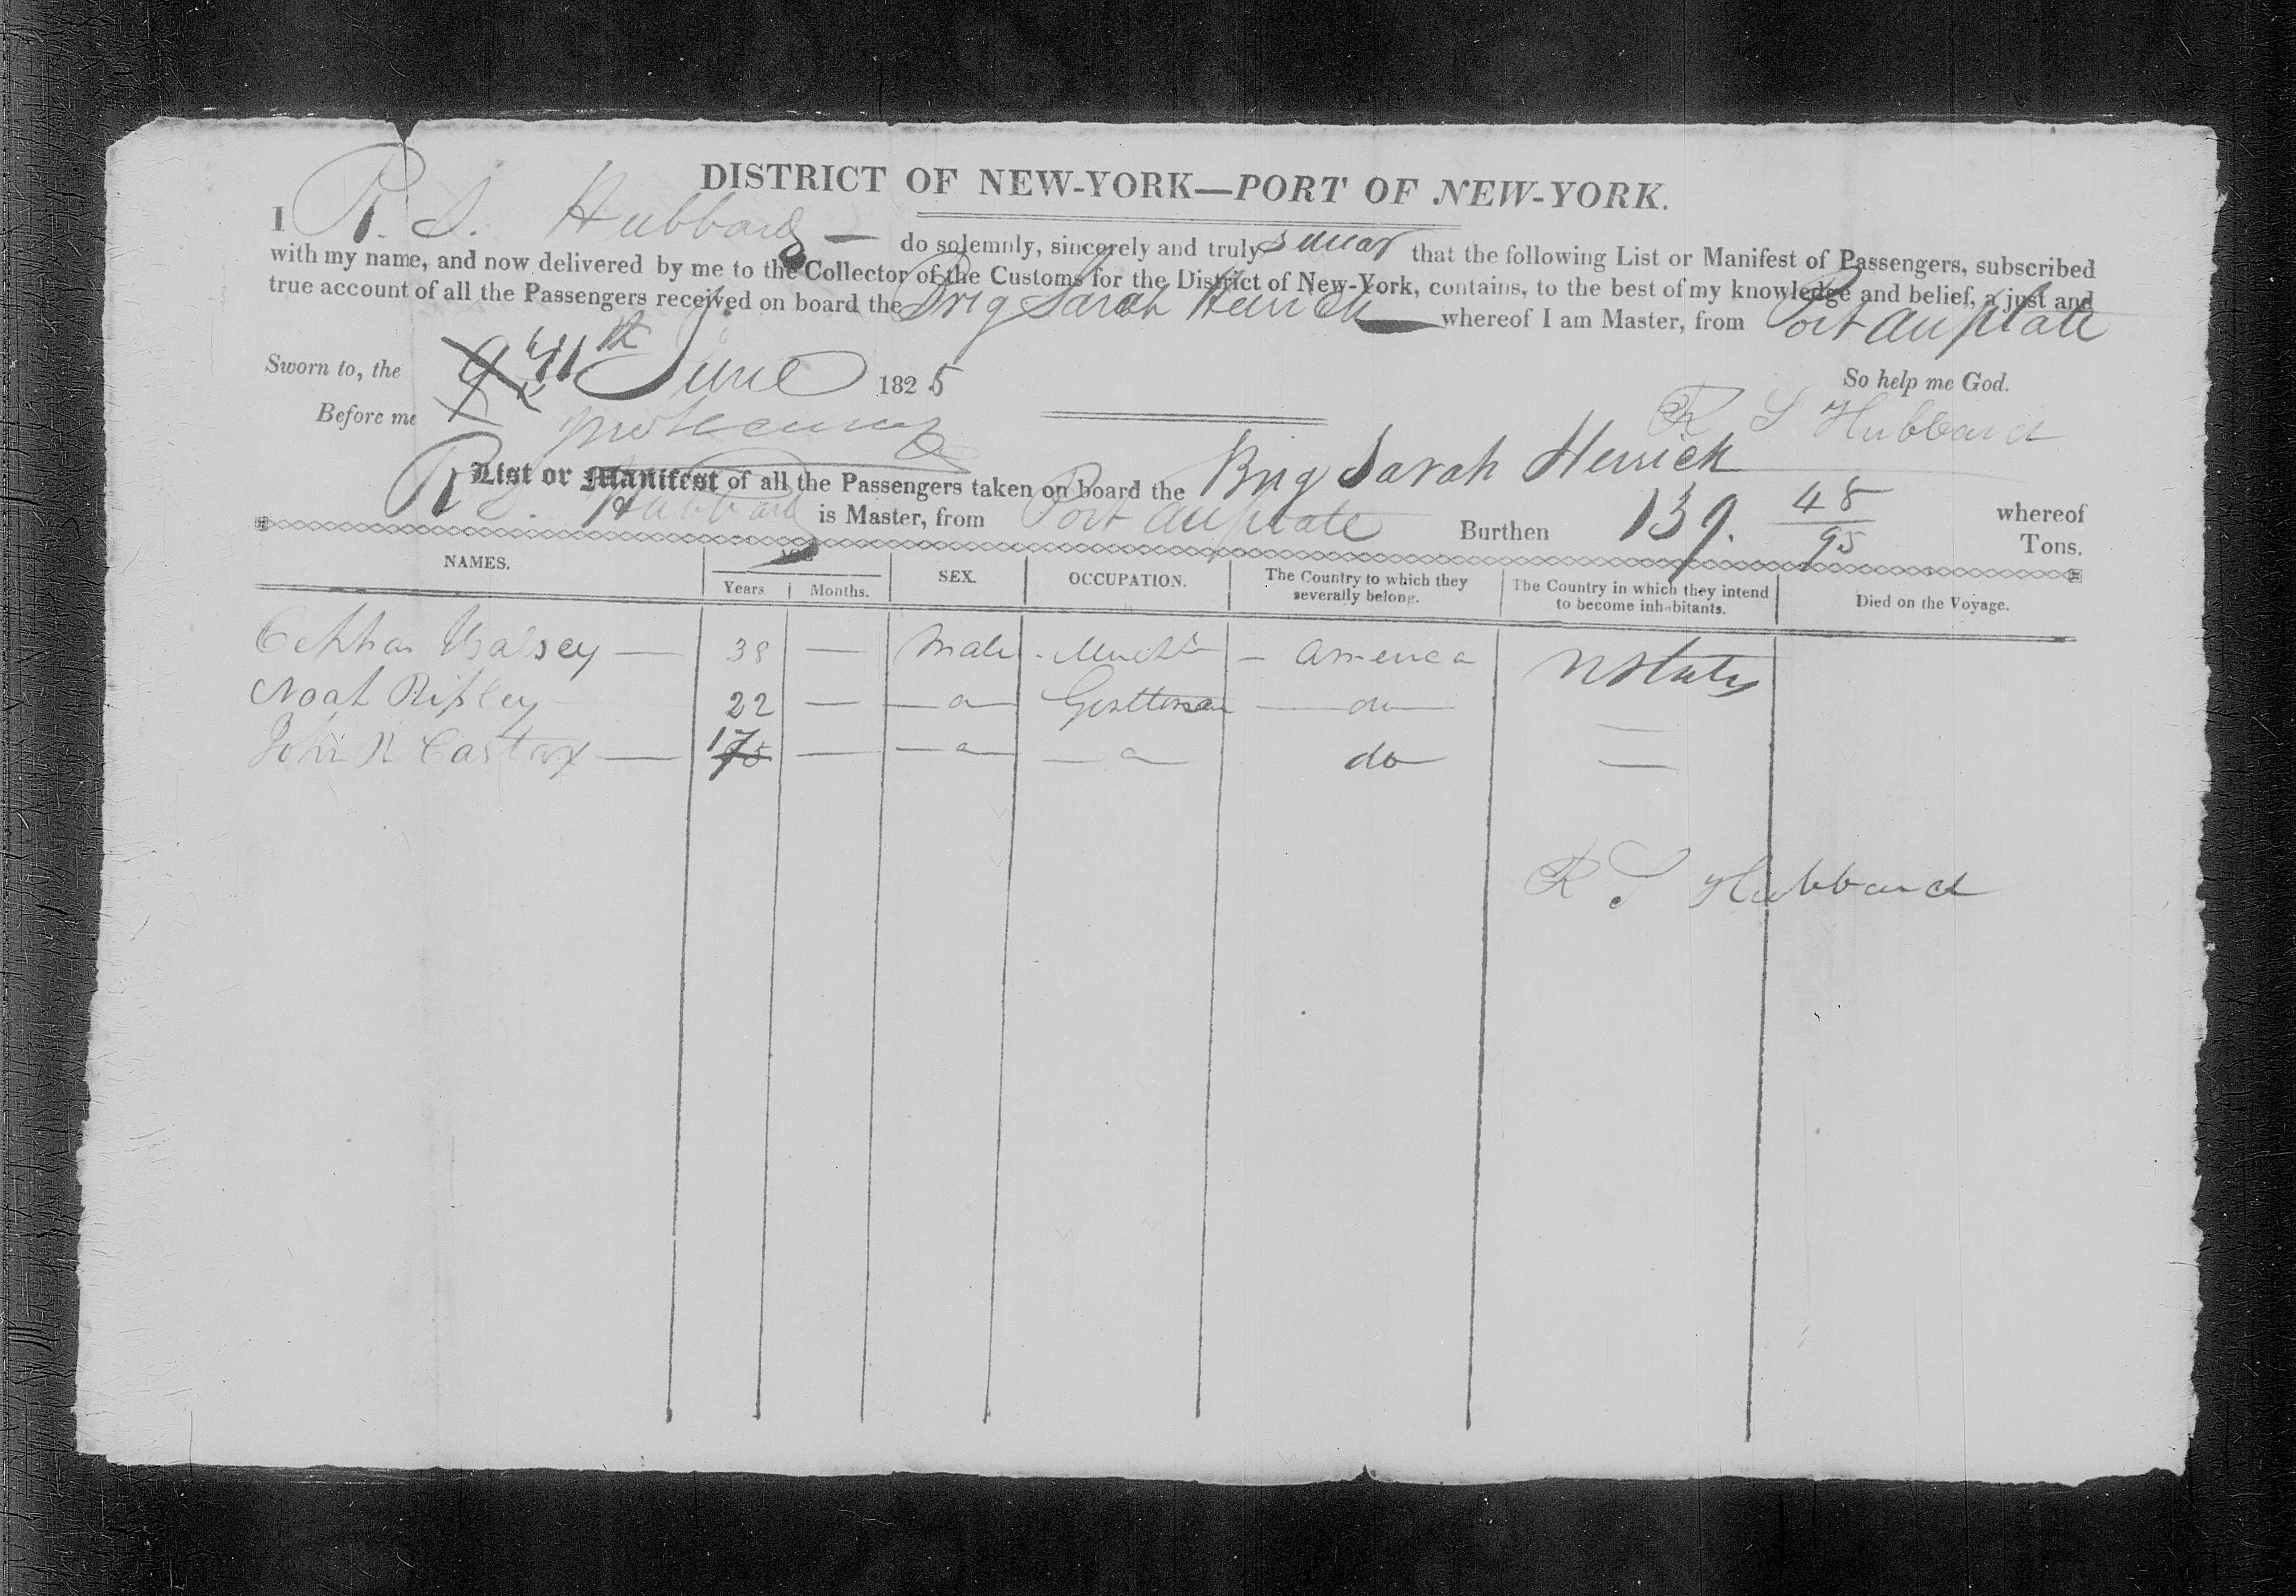 DISTRICT OF NEW-YORK—PORT OF NEW-YORK.
I R. S. Hubbard — do solemnly, sincerely and truly swear that the following List or Manifest of Passengers, subscribed
with my name, and now delivered by me to the Collector of the Customs for the District of New-York, contains, to the best of my knowledge and belief, a just and
true account of all the Passengers received on board the Brig Sarah Herrick whereof I am Master, from Port au plate
Sworn to, the 11th June 1825 So help me God.
Before me R S Hubbard
List or Manifest of all the Passengers taken on board the Brig Sarah Herrick whereof
R S. Hubbard is Master, from Port au plate Burthen 139. 48/95 Tons.
NAMES. AGE SEX. OCCUPATION. The Country to which they severally belong. The Country in which they intend to become inhabitants. Died on the Voyage.
Years Months.
Halsey — 38 — Male - Mercht — America U States
Noah Ripley 22 — — a — Gentleman — do —
John R — 17 — — a — — a — do — —
R S Hubbard